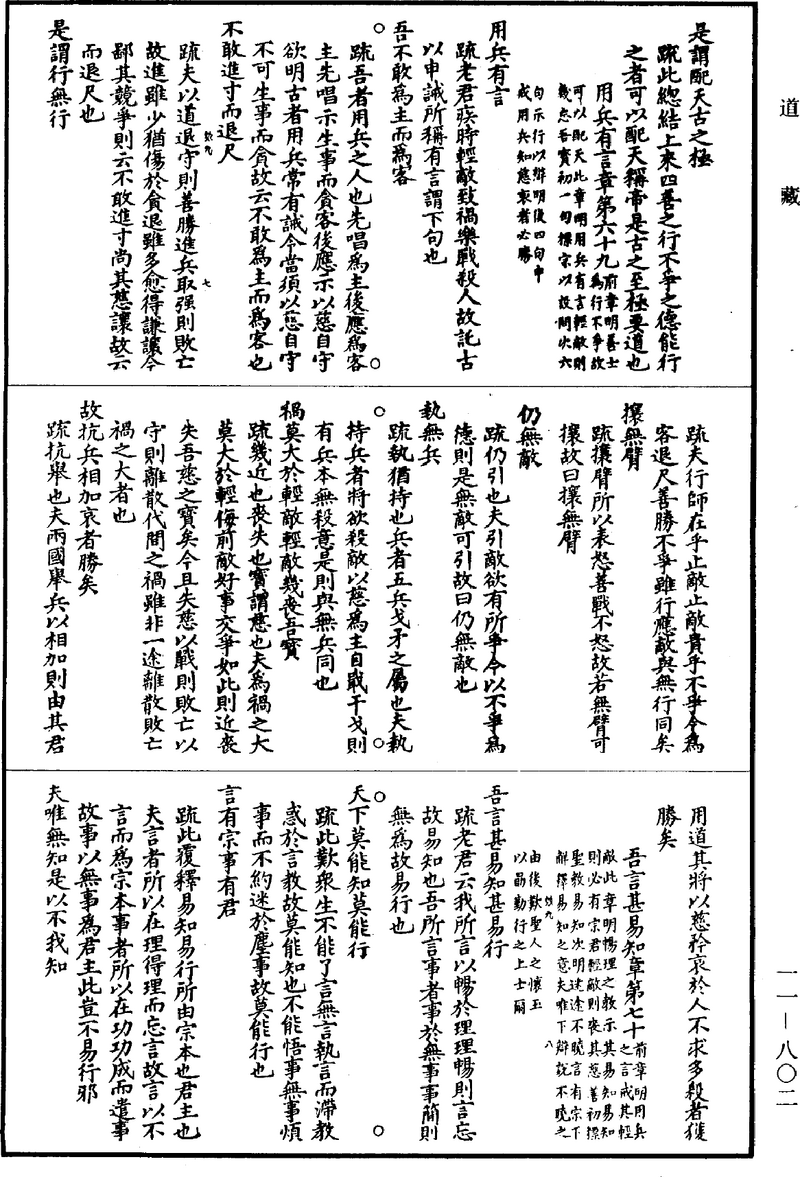 道藏
一一—八〇二
是謂配天古之極
疏此總結上來四善之行不爭之德能行
之者可以配天稱帝是古之至極要道也
用兵有言章第六十九前章明善士
為行不爭故
可以配天此章明用兵有言輕敵則
幾亡吾寶初一句標宗以設問次六
句示行以辯明後四句申
成用兵知慈哀者必勝
用兵有言
疏老君疾時輕敵致禍樂戰殺人故託古
以申誡所稱有言謂下句也
吾不敢為主而為客
疏吾者用兵之人也先唱為主後應為客
主先唱示生事而貪客後應示以慈自守
欲明古者用兵常有誡令當須以慈自守
不可生事而貪故云不敢為主而為客也
不敢進寸而退尺
疏夫以道退守則善勝進兵取强則敗亡
故進雖少猶傷於貪退雖多愈得謙讓今
鄙其競爭則云不敢進寸尚其慈讓故云
而退尺也
是謂行無行
疏夫行師在乎止敵止敵貴乎不爭今為
客退尺善勝不爭雖行應敵與無行同矣
攘無臂
疏攘臂所以表怒善戰不怒故若無臂可
攘故曰攘無臂
仍無敵
疏仍引也夫引敵欲有所爭今以不爭為
德則是無敵可引故曰仍無敵也
執無兵
疏執猶持也兵者五兵戈矛之屬也夫執
持兵者將欲殺敵以慈為主自戢干戈則
有兵本無殺意是則與無兵同也
禍莫大於輕敵輕敵幾喪吾寶
疏幾近也喪失也寶謂慈也夫為禍之大
莫大於輕侮前敵好事交爭如此則近喪
失吾慈之寶矣今且失慈以戰則敗亡以
守則離散代間之禍雖非一途離散敗亡
禍之大者也
故抗兵相加哀者勝矣
疏抗舉也夫兩國舉兵以相加則由其君
用道其將以慈矜哀於人不求多殺者獲
勝矣
吾言甚易知章第七十前章明用兵
之言戒其輕
敵此章明暢理之教示其易知易知
則必有宗君輕敵則喪其慈善初標
聖教易知次明迷途不曉言有宗下
辯釋易知之意夫唯下辯說不曉之
由後歎聖人之懷玉
以勗勤行之上士爾
吾言甚易知甚易行
疏老君云我所言以暢於理理暢則言忘
故易知也吾所言事者事於無事事簡則
無為故易行也
天下莫能知莫能行
疏此歎衆生不能了言無言執言而滯教
惑於言教故莫能知也不能悟事無事煩
事而不約迷於塵事故莫能行也
言有宗事有君
疏此覆釋易知易行所由宗本也君主也
夫言者所以在理得理而忘言故言以不
言而為宗本事者所以在功功成而遣事
故事以無事為君主此豈不易行邪
夫唯無知是以不我知